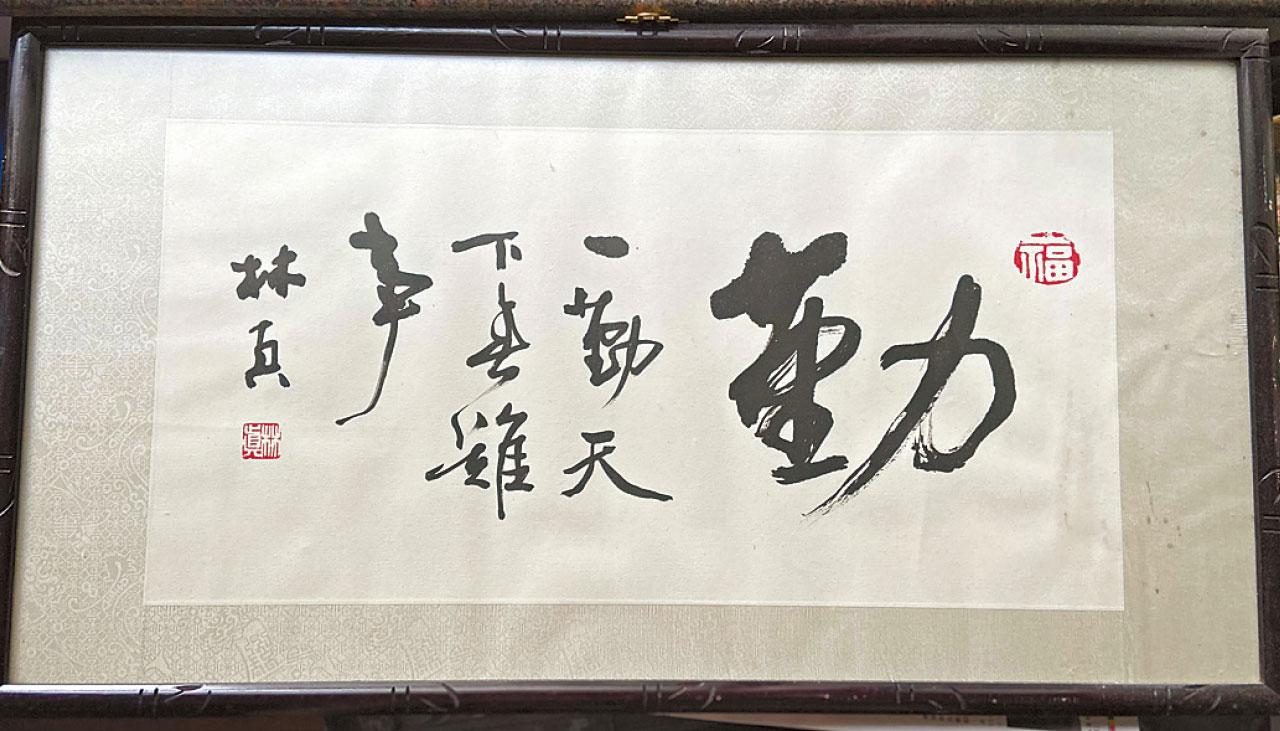 福
勤
一勤天
下無難
事
林真
林真